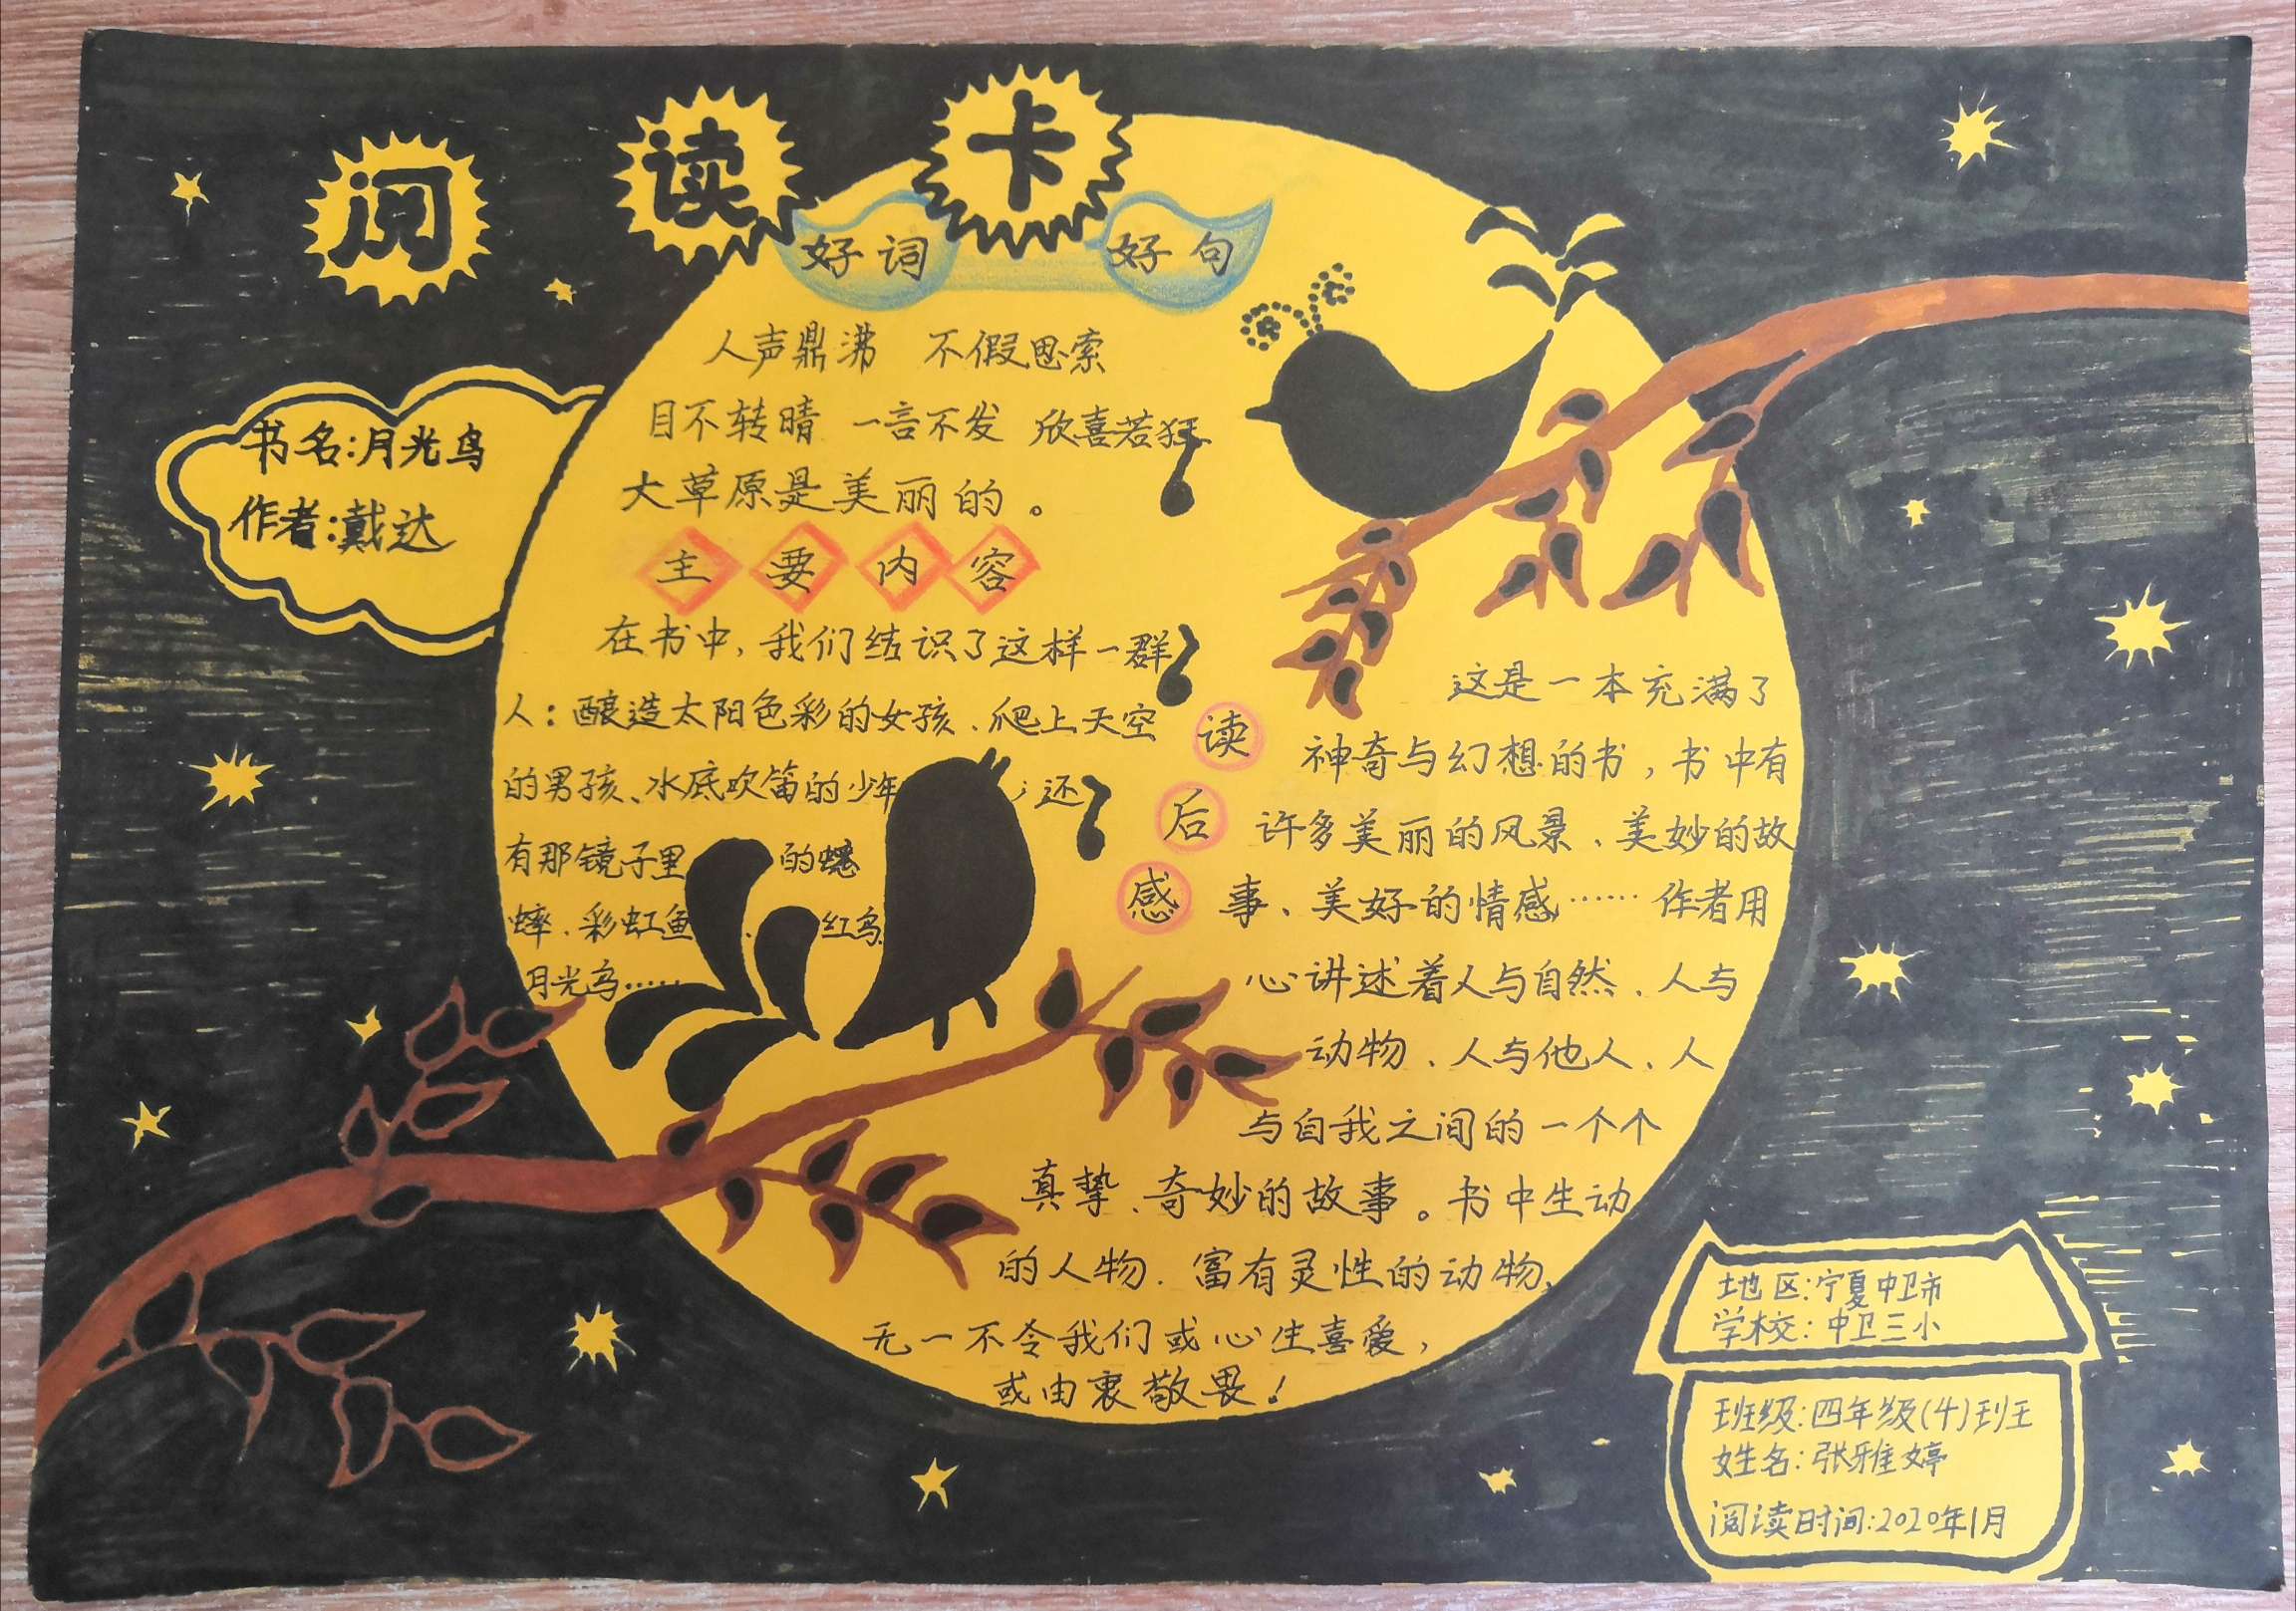 阅读卡
书名:月光鸟
作者:戴达
好词 好句
人声鼎沸 不假思索
目不转睛 一言不发 欣喜若狂
大草原是美丽的。
主要内容
在书中,我们结识了这样一群
人:酿造太阳色彩的女孩、爬上天空
的男孩、水底吹笛的少年 ;还
有那镜子里 的蟋
蟀、彩虹鱼、 红鸟
月光鸟……
读后感
这是一本充满了
神奇与幻想的书,书中有
许多美丽的风景、美妙的故
事、美好的情感……作者用
心讲述着人与自然、人与
动物、人与他人、人
与自我之间的一个个
真挚、奇妙的故事。书中生动
的人物、富有灵性的动物,
无一不令我们或心生喜爱,
或由衷敬畏!
地区:宁夏中卫市
学校:中卫三小
班级:四年级(4)班
姓名:张雅婷
阅读时间:2020年1月